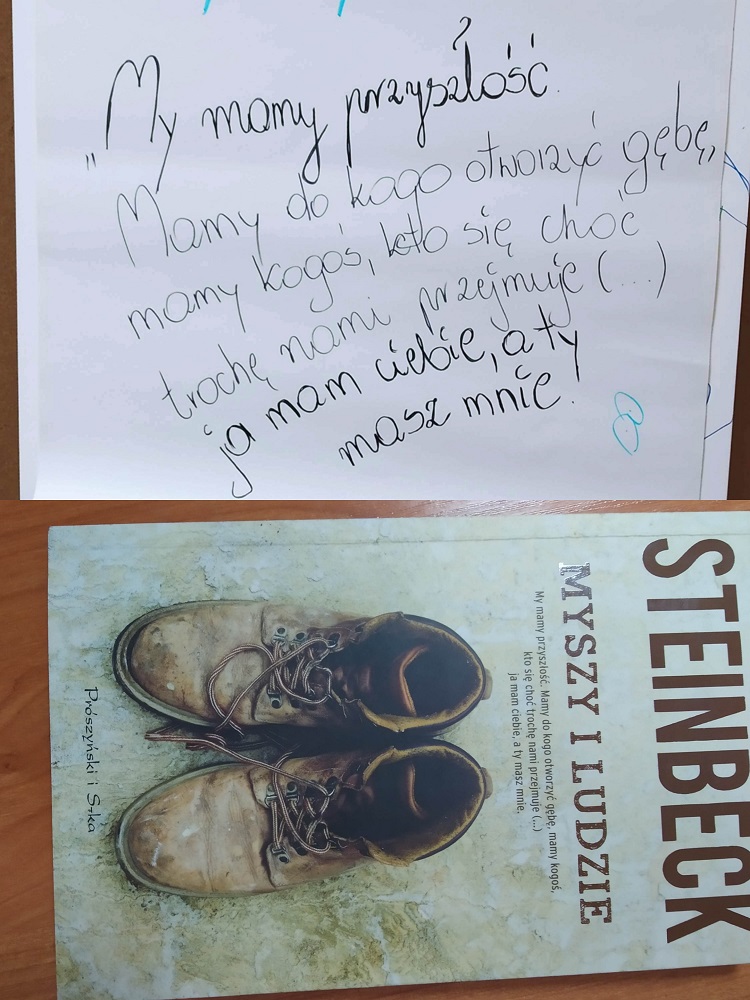 "My mamy przyszłość.
Mamy do kogo otworzyć gębę,
mamy kogoś, kto się choć
trochę nami przejmuje (...)
ja mam ciebie, a ty
masz mnie!
STEINBECK
MYSZY I LUDZIE
My mamy przyszłość. Mamy do kogo otworzyć gębę, mamy kogoś,
kto się choć trochę nami przejmuje (...)
ja mam ciebie, a ty masz mnie.
Prószyński i S-ka